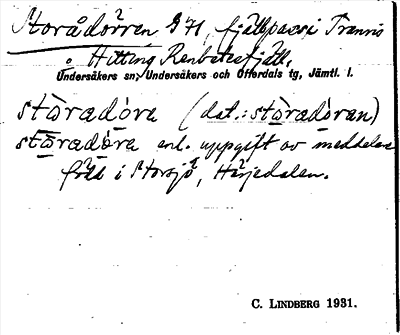 Storådörren 971, fjällpass i Trannis
o. Hitting Renbetesfjäll,
Undersåkers sn, Undersåkers och Offerdals tg, Jämtl. l.
stòradòra (dat.: stòradòran)
stòradòra enl. uppgift av meddelare
från i Storsjö, Härjedalen.
C. LINDBERG 1931.